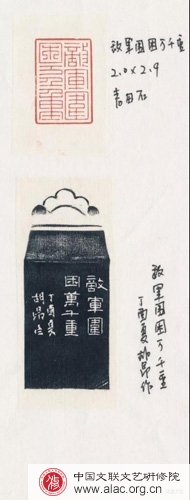 敵軍圍
困万千重
敌軍围困万千重
2.0×2.9
青田石
敵軍圍
困萬千重
丁酉夏
敌军围困万千重
丁酉夏胡昂作
中国文联文艺研修院
www.alac.org.cn